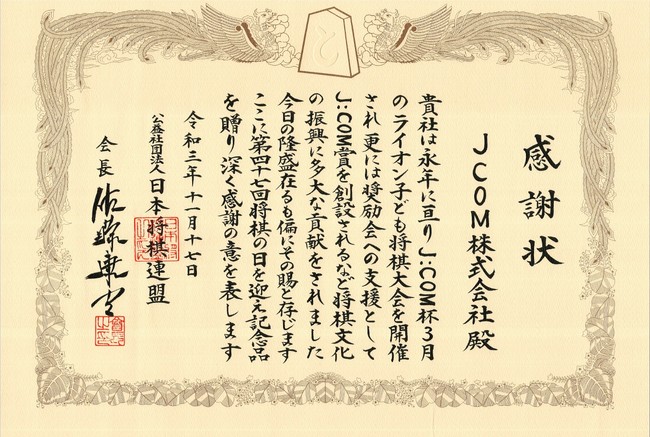 感謝状
JCOM株式会社殿
貴社は永年に亘りJ:COM杯3月
のライオン子ども将棋大会を開催
され更には奨励会への支援として
J:COM賞を創設されるなど将棋文化
の振興に多大な貢献をされました
今日の隆盛在るも偏にその賜と存じます
ここに第四十七回将棋の日を迎え記念品
を贈り深く感謝の意を表します
令和三年十一月十七日
公益社団法人日本将棋連盟
会長 佐藤康光